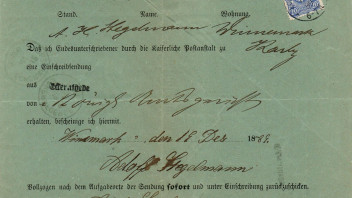 Stand. Name. Wohnung.
A. H. Hegelmann Winnemark
Daß ich Endesunterschriebener durch die Kaiserliche Postanstalt zu Karby
eine Einschreibsendung
aus
von Königl. Amtsgericht
erhalten, bescheinige ich hiermit.
Winnemark, den 18 Dez 1889.
Adolf Hegelmann
Vollzogen nach dem Aufgabeorte der Sendung sofort und unter Einschreibung zurückzuschicken.